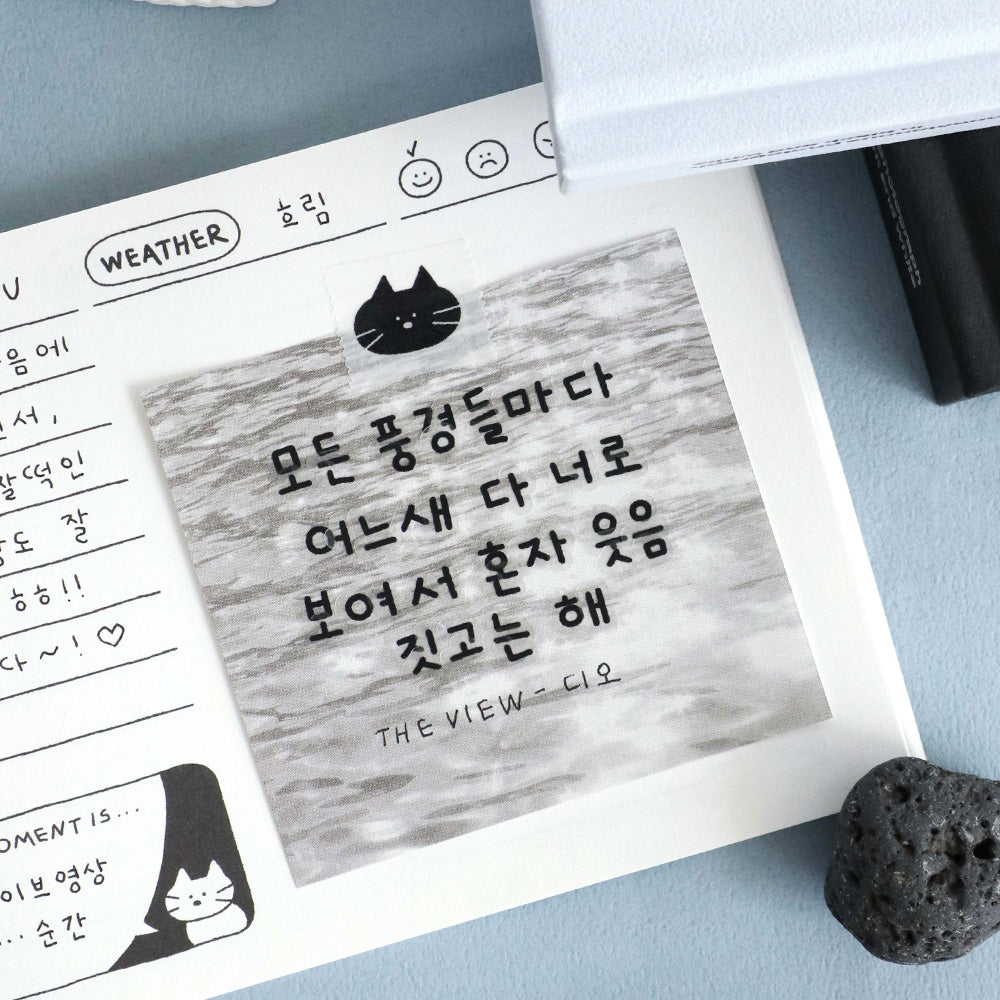 WEATHER 흐림
음에
서,
찰떡인
도 잘
ㅎㅎ!!
다~!♡
모든 풍경들마다
어느새 다 너로
보여서 혼자 웃음
짓고는 해
THE VIEW - 디오
OMENT IS...
이브영상
... 순간